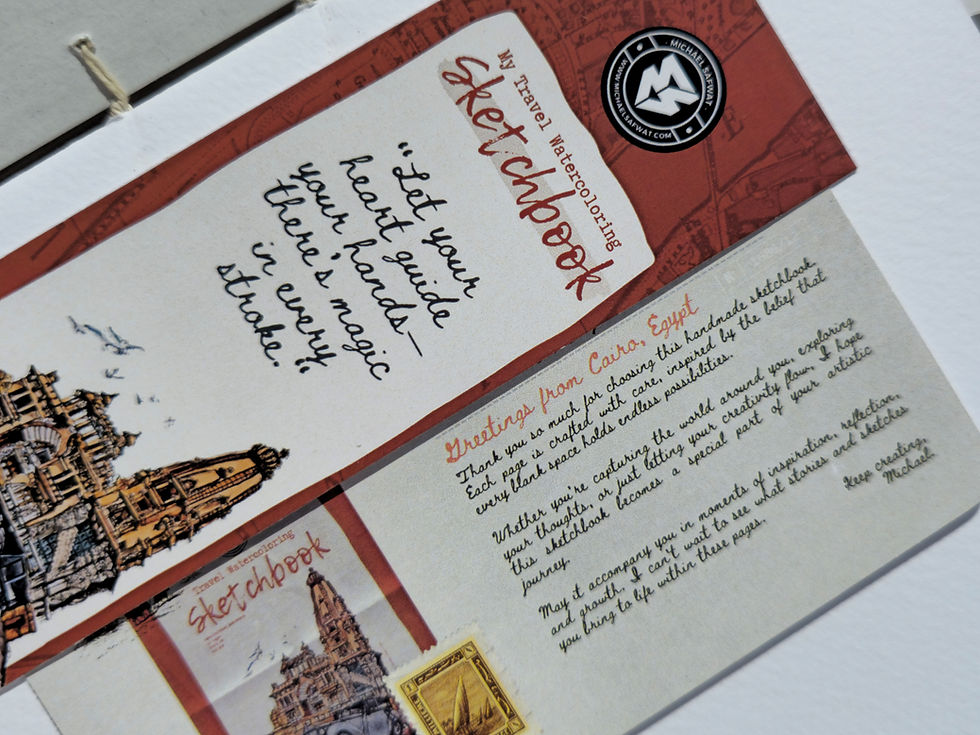 My Travel Watercoloring
Sketchbook
"Let your
heart guide
your hands—
there's magic
in every
stroke."
MICHAEL SAFWAT
WWW.MICHAELSAFWAT.COM
Greetings from Cairo, Egypt
Thank you so much for choosing this handmade sketchbook.
Each page is crafted with care, inspired by the belief that
every blank space holds endless possibilities.
Whether you're capturing the world around you, exploring
your thoughts, or just letting your creativity flow, I hope
this sketchbook becomes a special part of your artistic
journey.
May it accompany you in moments of inspiration, reflection,
and growth, I can't wait to see what stories and sketches
you bring to life within these pages.
Keep creating,
Michael
Travel Watercoloring
Sketchbook